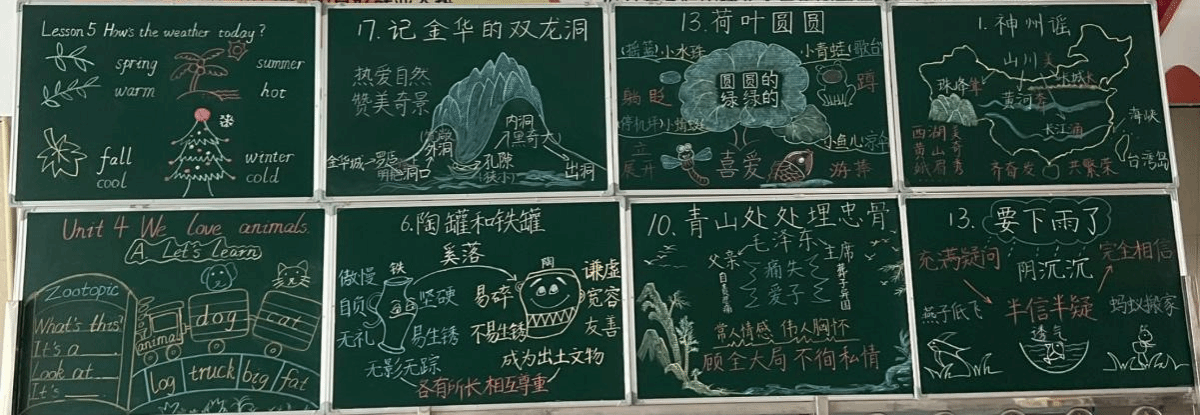 Lesson 5 How's the weather today?
spring
warm
summer
hot
fall
cool
winter
cold
17.记金华的双龙洞
热爱自然
赞美奇景
内洞
黑奇大
外洞
金华城
洞口
孔隙
(狭小)
出洞
13.荷叶圆圆
(摇篮)小水珠
小青蛙(歌台)
躺 眨
圆圆的
绿绿的
蹲
(停机坪)小蜻蜓
小鱼儿(凉伞)
立
展开
喜爱
游 捧
1.神州谣
山川美
珠峰耸
长城长
黄河奔
长江涌
海峡
台湾岛
西湖美
黄山奇
峨眉秀
齐奋发
共繁荣
Unit 4 We love animals.
A Let's learn
Zootopic
What's this?
It's a ___.
Look at ___
It's ___.
animal
dog
cat
log
truck
big
fat
6.陶罐和铁罐
奚落
傲慢
自负
无礼
铁
坚硬
易生锈
无影无踪
易碎
不易生锈
陶
谦虚
宽容
友善
成为出土文物
各有所长 相互尊重
10.青山处处埋忠骨
毛泽东
父亲
主席
痛失
爱子
常人情感 伟人胸怀
顾全大局 不徇私情
13.要下雨了
充满疑问
阴沉沉
完全相信
燕子低飞
半信半疑
蚂蚁搬家
透气